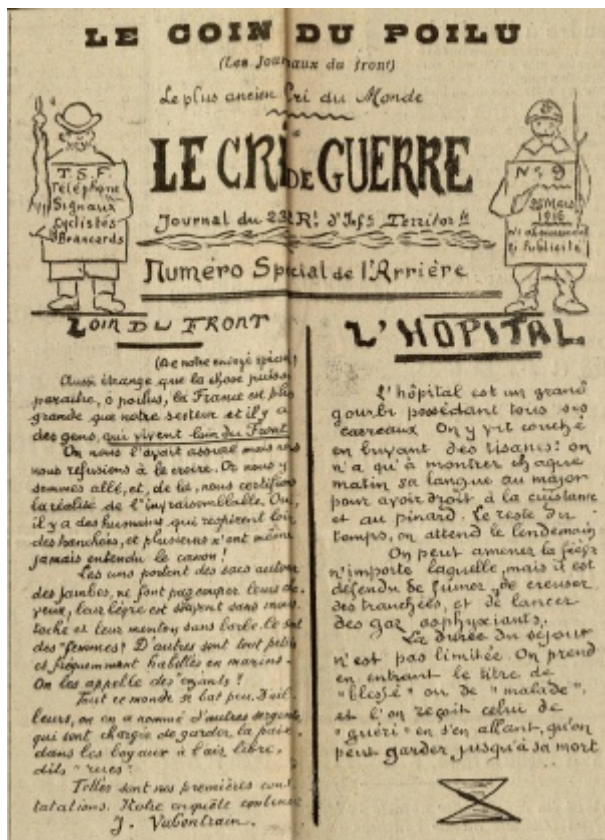 LE COIN DU POILU
(Les Journaux du front)
Le plus ancien Cri du Monde
LE CRI DE GUERRE
Journal du R! d'Inf^ie Territor^le
Numéro Spécial de l'Arrière
T.S.F.
Téléphone
Signaux
Cyclistes
Brancards
N° 9
Mars
1916
Ni abonnement
ni Publicité
LOIN DU FRONT
(De notre envoyé spécial)
Aussi étrange que la chose puisse
paraître, o poilus, la France est plus
grande que notre secteur et il y a
des gens, qui vivent loin du Front
On nous l'avait assuré mais nous
nous refusions à le croire. Or nous y
sommes allé, et, de là, nous certifions
la réalité de l'invraisemblable. Oui,
il y a des humains qui respirent loin
des tranchées, et plusieurs n'ont même
jamais entendu le canon !
Les uns portent des sacs autour
des jambes, ne font pas couper leurs che-
veux, leur lèvre est souvent sans mous-
tache et leur menton sans barbe. Ce sont
des "femmes" ! D'autres sont tout petits
et fréquemment habillés en marins.
On les appelle des "enfants" !
Tout ce monde se bat peu. D'ail-
leurs, on en a nommé d'autres sergents
qui sont chargés de garder la paix
dans les boyaux à l'air libre,
dits "rues".
Telles sont nos premières cons-
tatations. Notre enquête continue
J.
L'HOPITAL
L'hôpital est un grand
gourbi possédant tous ses
carreaux. On y vit couché
en buvant des tisanes : on
n'a qu'à montrer chaque
matin sa langue au major
pour avoir droit à la cuistance
et au pinard. Le reste du
temps, on attend le lendemain
On peut amener la fièvre
n'importe laquelle, mais il est
défendu de fumer, de creuser
des tranchées, et de lancer
des gaz asphyxiants.
La durée du séjour
n'est pas limitée. On prend
en entrant le titre de
"blessé" ou de "malade",
et l'on reçoit celui de
"guéri" en s'en allant, qu'on
peut garder jusqu'à sa mort